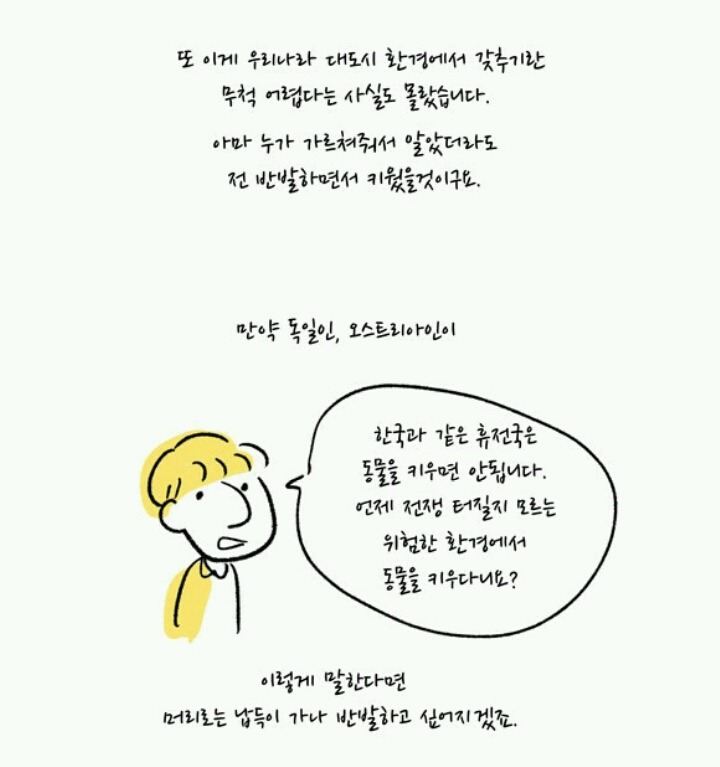 또 이게 우리나라 대도시 환경에서 갖추기란
무척 어렵다는 사실도 몰랐습니다.
아마 누가 가르쳐줘서 알았더라도
전 반발하면서 키웠을것이구요.
만약 독일인, 오스트리아인이
한국과 같은 휴전국은
동물을 키우면 안됩니다.
언제 전쟁 터질지 모르는
위험한 환경에서
동물을 키우다니요?
이렇게 말한다면
머리로는 납득이 가나 반발하고 싶어지겠죠.